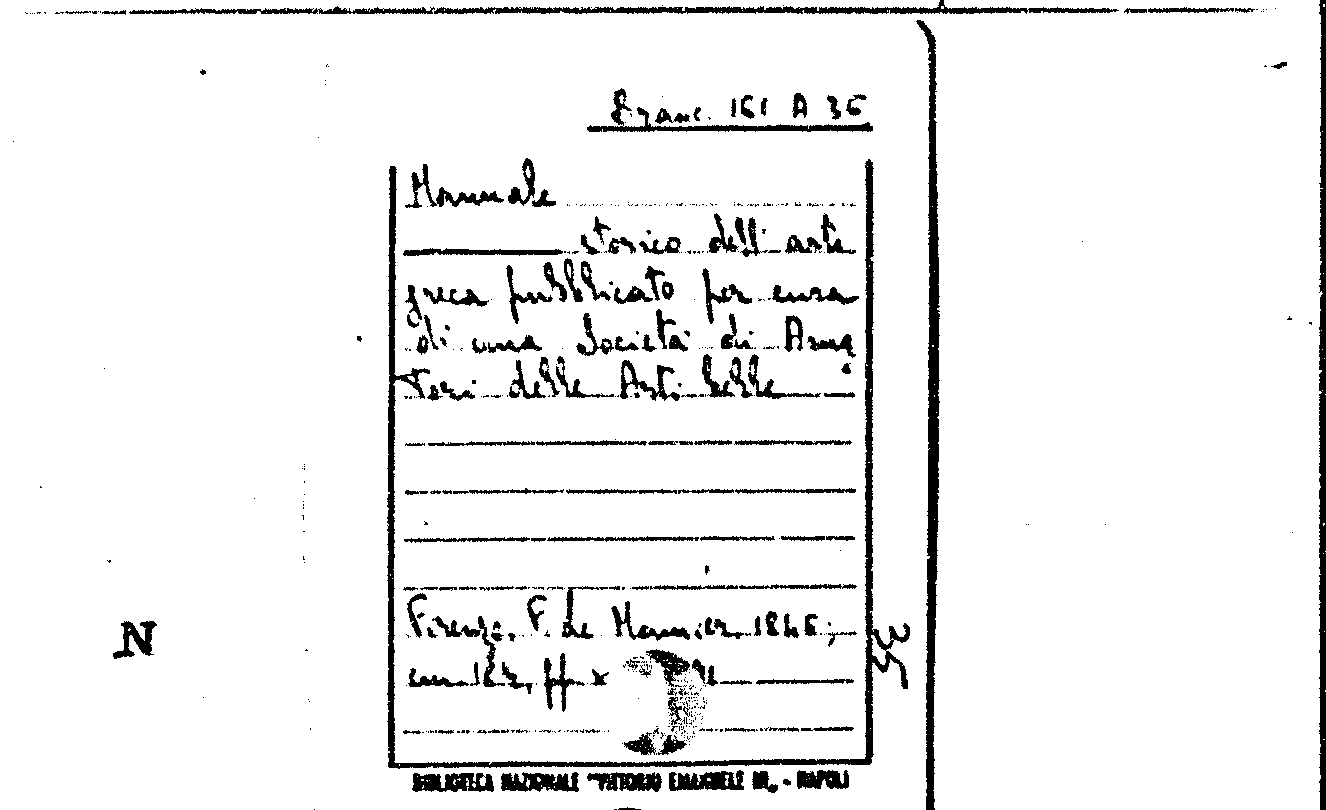 Branc. 161 A 36
Manuale
storico dell'arte
greca pubblicato per cura
di una Società di Ama
tori delle Arti belle
Firenze, F. Le Monnier, 1846;
cm. pp. X
N
BIBLIOTECA NAZIONALE "VITTORIO EMANUELE III" - NAPOLI